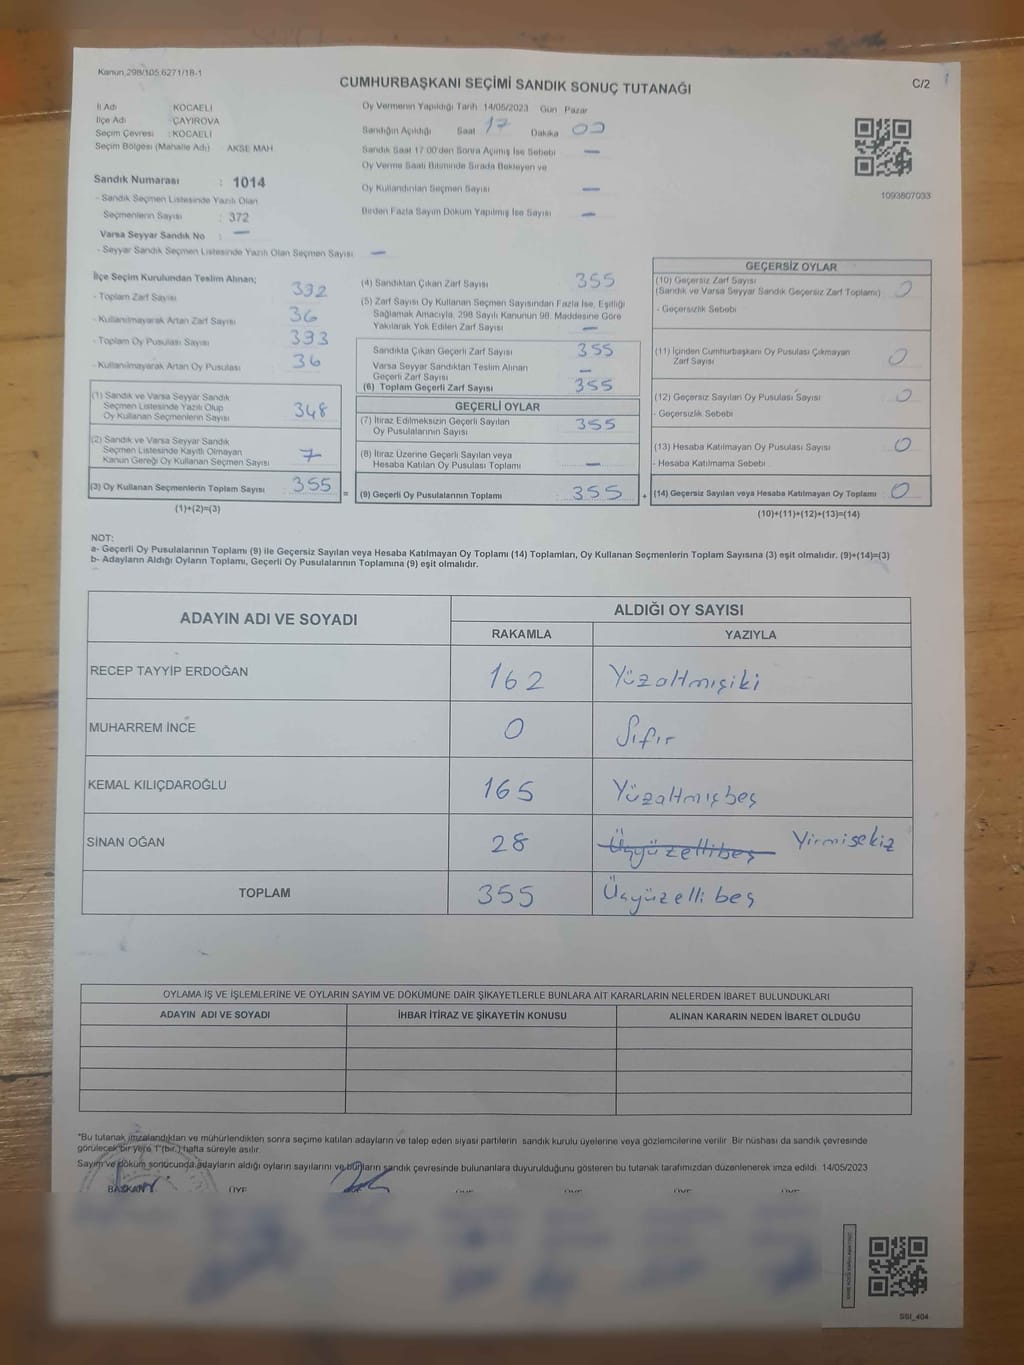 Kanun,298/105,6271/18-1
CUMHURBAŞKANI SEÇİMİ SANDIK SONUÇ TUTANAĞI
C/2
İl Adı : KOCAELİ
İlçe Adı : ÇAYIROVA
Seçim Çevresi : KOCAELİ
Seçim Bölgesi (Mahalle Adı) AKSE MAH.
Sandık Numarası : 1014
- Sandık Seçmen Listesinde Yazılı Olan
Seçmenlerin Sayısı : 372
Varsa Seyyar Sandık No : —
- Seyyar Sandık Seçmen Listesinde Yazılı Olan Seçmen Sayısı : —
Oy Vermenin Yapıldığı Tarih 14/05/2023 Gün Pazar
Sandığın Açıldığı Saat 17 Dakika 00
Sandık Saat 17:00'den Sonra Açılmış İse Sebebi —
Oy Verme Saati Bitiminde Sırada Bekleyen ve
Oy Kullandırılan Seçmen Sayısı —
Birden Fazla Sayım Döküm Yapılmış İse Sayısı —
1093807033
İlçe Seçim Kurulundan Teslim Alınan;
- Toplam Zarf Sayısı 392
- Kullanılmayarak Artan Zarf Sayısı 36
- Toplam Oy Pusulası Sayısı 393
- Kullanılmayarak Artan Oy Pusulası 36
(1) Sandık ve Varsa Seyyar Sandık
Seçmen Listesinde Yazılı Olup
Oy Kullanan Seçmenlerin Sayısı 348
(2) Sandık ve Varsa Seyyar Sandık
Seçmen Listesinde Kayıtlı Olmayan
Kanun Gereği Oy Kullanan Seçmen Sayısı 7
(3) Oy Kullanan Seçmenlerin Toplam Sayısı 355
(1)+(2)=(3)
=
(4) Sandıktan Çıkan Zarf Sayısı 355
(5) Zarf Sayısı Oy Kullanan Seçmen Sayısından Fazla İse, Eşitliği
Sağlamak Amacıyla, 298 Sayılı Kanunun 98. Maddesine Göre
Yakılarak Yok Edilen Zarf Sayısı —
Sandıkta Çıkan Geçerli Zarf Sayısı 355
Varsa Seyyar Sandıktan Teslim Alınan
Geçerli Zarf Sayısı —
(6) Toplam Geçerli Zarf Sayısı 355
GEÇERLİ OYLAR
(7) İtiraz Edilmeksizin Geçerli Sayılan
Oy Pusulalarının Sayısı 355
(8) İtiraz Üzerine Geçerli Sayılan veya
Hesaba Katılan Oy Pusulası Toplamı —
(9) Geçerli Oy Pusulalarının Toplamı 355
+
GEÇERSİZ OYLAR
(10) Geçersiz Zarf Sayısı
(Sandık ve Varsa Seyyar Sandık Geçersiz Zarf Toplamı) 0
- Geçersizlik Sebebi
(11) İçinden Cumhurbaşkanı Oy Pusulası Çıkmayan
Zarf Sayısı 0
(12) Geçersiz Sayılan Oy Pusulası Sayısı 0
- Geçersizlik Sebebi
(13) Hesaba Katılmayan Oy Pusulası Sayısı 0
- Hesaba Katılmama Sebebi
(14) Geçersiz Sayılan veya Hesaba Katılmayan Oy Toplamı : 0
(10)+(11)+(12)+(13)=(14)
NOT:
a- Geçerli Oy Pusulalarının Toplamı (9) ile Geçersiz Sayılan veya Hesaba Katılmayan Oy Toplamı (14) Toplamları, Oy Kullanan Seçmenlerin Toplam Sayısına (3) eşit olmalıdır. (9)+(14)=(3)
b- Adayların Aldığı Oyların Toplamı, Geçerli Oy Pusulalarının Toplamına (9) eşit olmalıdır.
ADAYIN ADI VE SOYADI
ALDIĞI OY SAYISI
RAKAMLA YAZIYLA
RECEP TAYYİP ERDOĞAN 162 Yüzaltmışiki
MUHARREM İNCE 0 Sıfır
KEMAL KILIÇDAROĞLU 165 Yüzaltmışbeş
SİNAN OĞAN 28 Üçyüzellibeş Yirmisekiz
TOPLAM 355 Üçyüzelli beş
OYLAMA İŞ VE İŞLEMLERİNE VE OYLARIN SAYIM VE DÖKÜMÜNE DAİR ŞİKAYETLERLE BUNLARA AİT KARARLARIN NELERDEN İBARET BULUNDUKLARI
ADAYIN ADI VE SOYADI İHBAR İTİRAZ VE ŞİKAYETİN KONUSU ALINAN KARARIN NEDEN İBARET OLDUĞU
*Bu tutanak imzalandıktan ve mühürlendikten sonra seçime katılan adayların ve talep eden siyasi partilerin sandık kurulu üyelerine veya gözlemcilerine verilir. Bir nüshası da sandık çevresinde
görülecek bir yere 1 (bir) hafta süreyle asılır.
Sayım ve döküm sonucunda adayların aldığı oyların sayılarını ve bunların sandık çevresinde bulunanlara duyurulduğunu gösteren bu tutanak tarafımızdan düzenlenerek imza edildi. 14/05/2023
BAŞKAN ÜYE ÜYE ÜYE ÜYE ÜYE
SSI_404